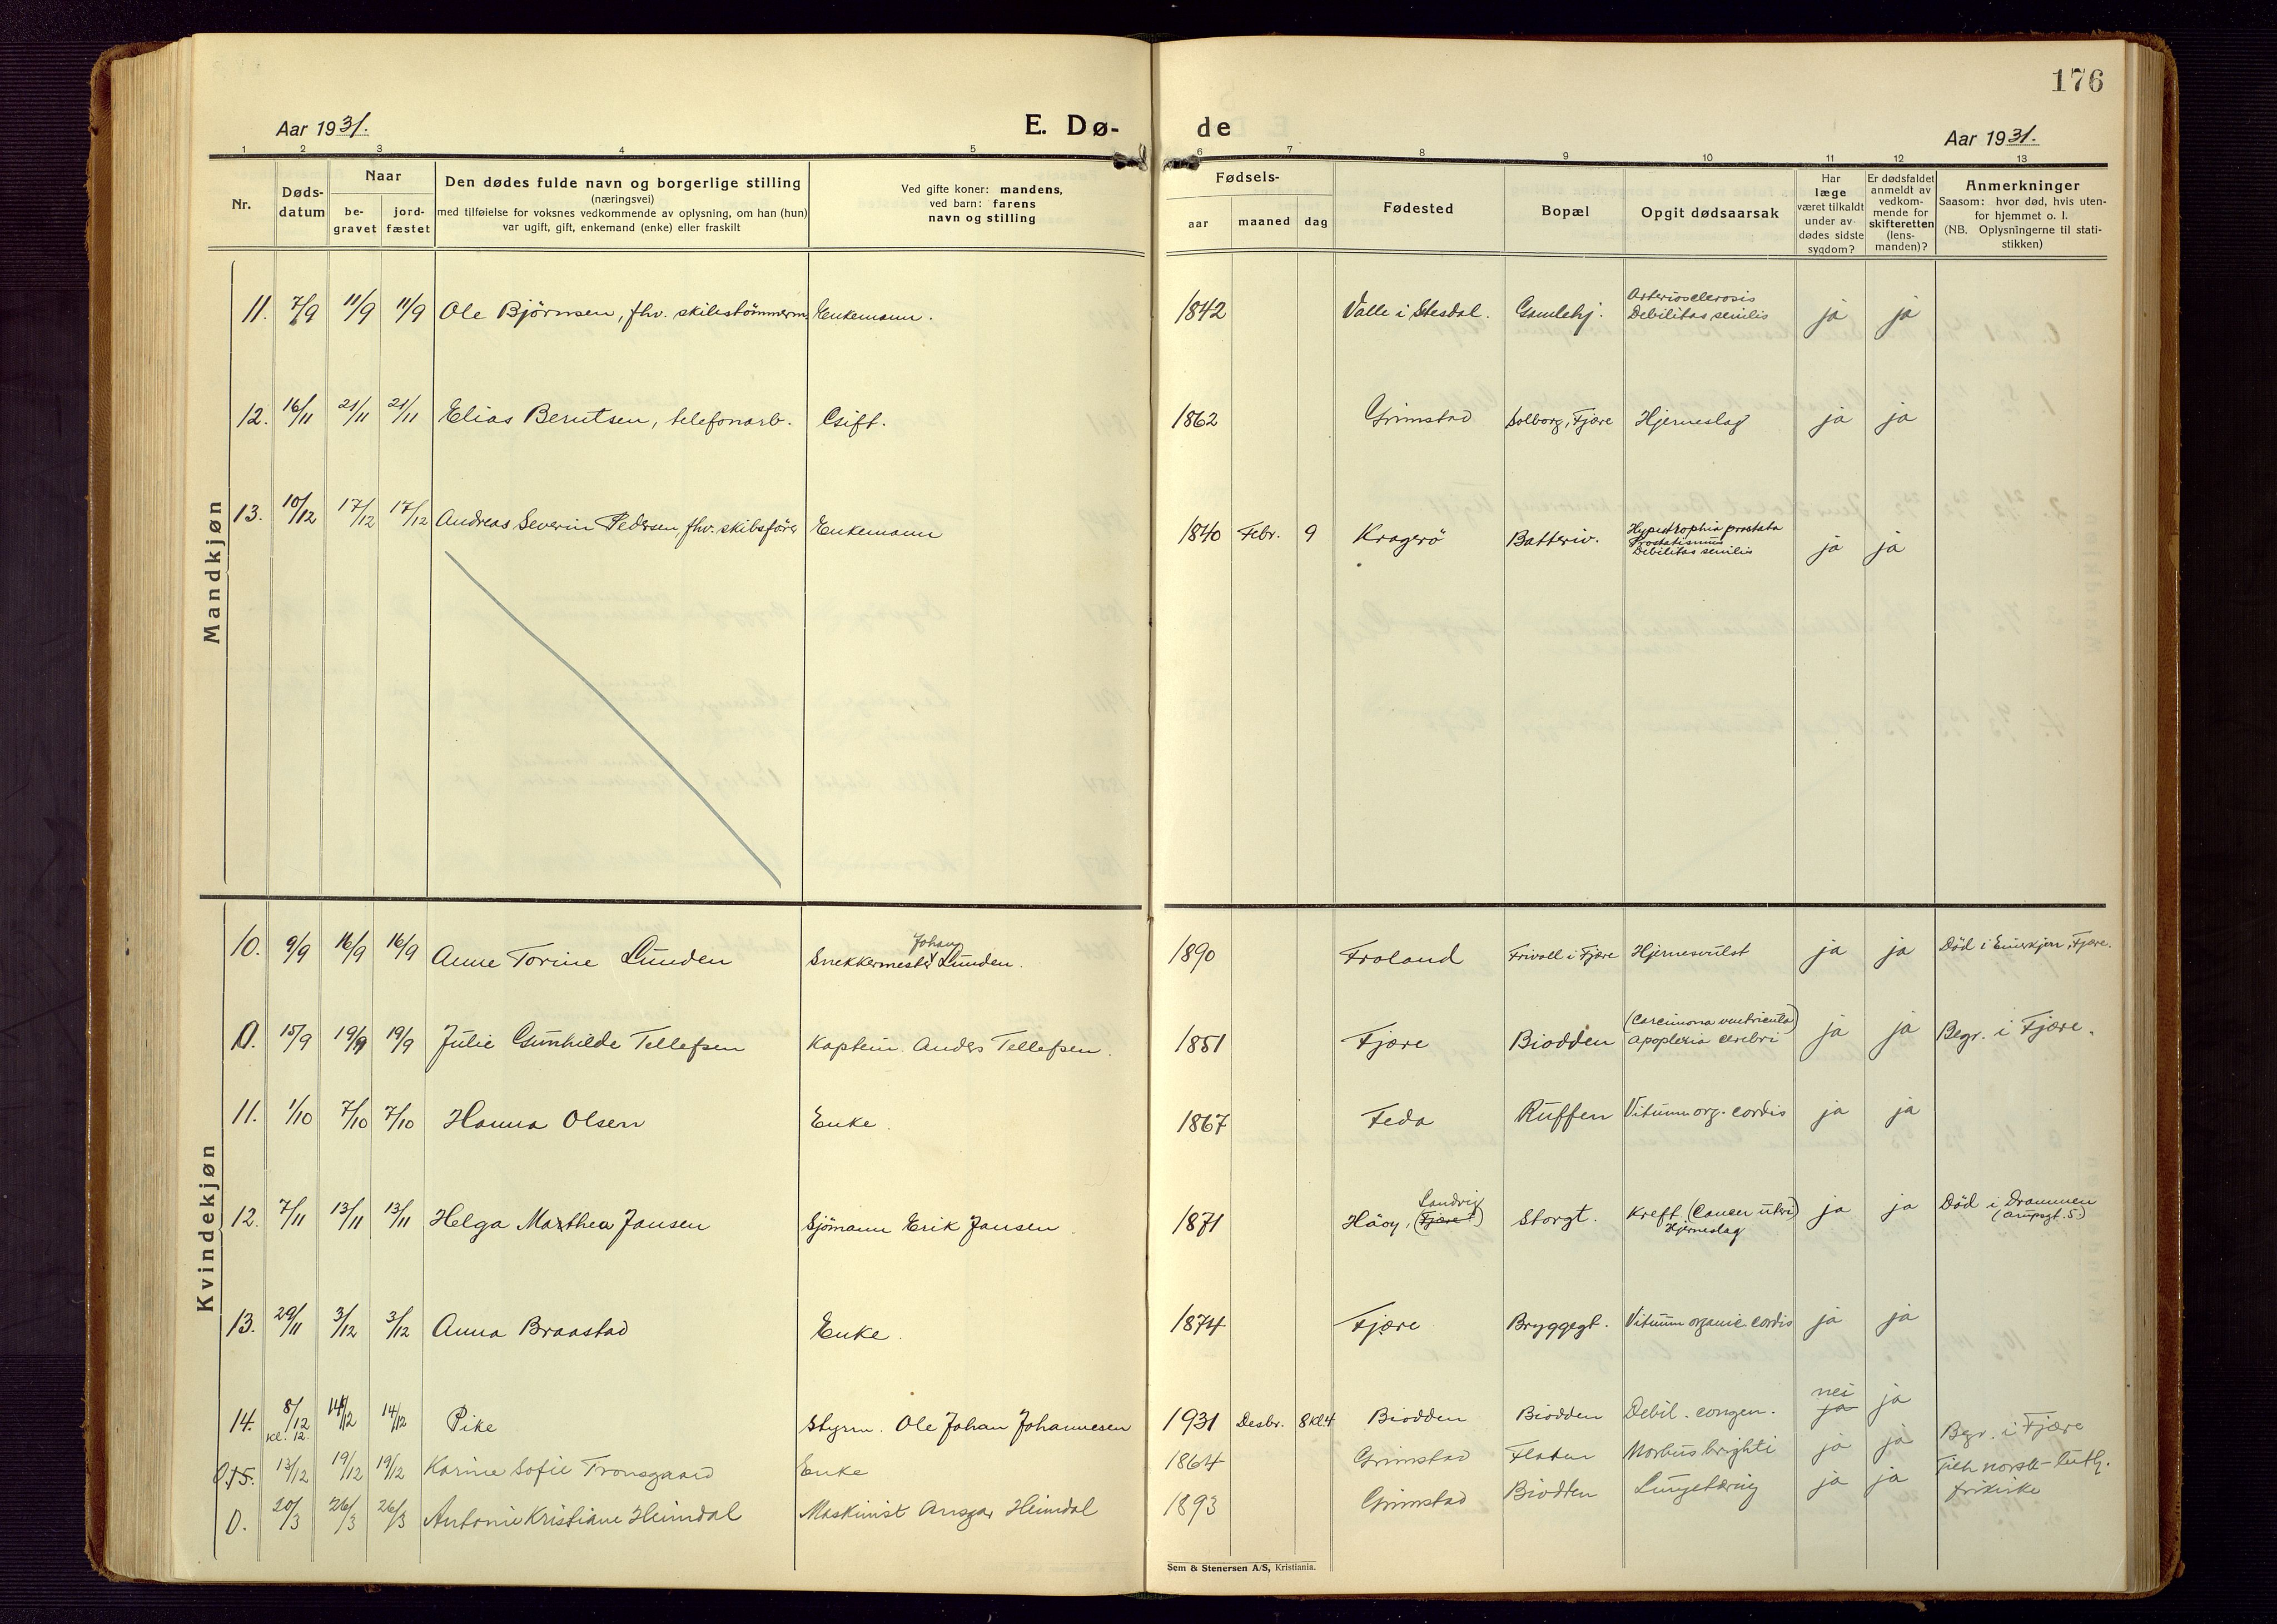 176
Aar 1931.
E. Dø-
de
Aar 1931.
1 2 3 4 5 6 7 8 9 10 11 12 13
Nr.
Døds-
datum
Naar
be-
gravet
jord-
fæstet
Den dødes fulde navn og borgerlige stilling
(næringsvei)
med tilføielse for voksnes vedkommende av oplysning, om han (hun)
var ugift, gift, enkemand (enke) eller fraskilt
Ved gifte koner: mandens,
ved barn: farens
navn og stilling
Fødsels-
aar maaned dag
Fødested
Bopæl
Opgit dødsaarsak
Har
læge
været tilkaldt
under av-
dødes sidste
sygdom?
Er dødsfaldet
anmeldt av
vedkom-
mende for
skifteretten
(lens-
manden)?
Anmerkninger
Saasom: hvor død, hvis uten-
for hjemmet o. l.
(NB. Oplysningerne til stati-
stikken)
Mandkjøn
11. 7/9 11/9 11/9 Ole Björnsen, fhv. skibstömmerm. Enkemann. 1842 Valle i Setesdal. Gamlehj. Arteriosclerosis
Debilitas senilis ja ja
12. 16/11 21/11 21/11 Elias Berntsen, telefonarb. Gift. 1862 Grimstad Solborg, Fjære Hjerneslag ja ja
13. 10/12 17/12 17/12 Andreas Severin Pedersen, fhv. skibsförer Enkemann 1840 Febr. 9 Kragerö Batteriv. Hypertrophia prostata
Prostatismus
Debilitas senilis ja ja
Kvindekjøn
10. 9/9 16/9 16/9 Anne Torine Lunden Snekkermester Johan Lunden. 1890 Froland Frivoll i Fjære Hjernesvulst ja ja Död i Fjære.
0. 15/9 19/9 19/9 Julie Gunhilde Tellefsen Kaptein Anders Tellefsen. 1851 Fjære Biodden (Carcinoma ventricula)
Apoplexia cerebri ja ja Begr. i Fjære.
11. 1/10 7/10 7/10 Hanna Olsen Enke. 1867 Feda Ruffen Vitium org. cordis ja ja
12. 7/11 13/11 13/11 Helga Marthea Jansen Sjömann Erik Jansen. 1871 Håöy, Landvig (Fjære) Storgt. Kreft (Cancer uteri)
Hjerneslag ja ja Död i Drammen
13. 29/11 3/12 3/12 Anna Braastad Enke. 1874 Fjære Bryggegt. Vitium organic cordis ja ja
14. 8/12 kl. 12. 14/12 14/12 Pike Styrm. Ole Johan Johannesen 1931 Desbr. 8 kl 4 Biodden Biodden Debil. congen. nei ja ja
0. 15. 13/12 19/12 19/12 Karine Sofie Tronsgaard Enke 1864 Grimstad Flaten Morbus brighti ja ja Begr. i Fjære
0. 20/3 26/3 26/3 Antonie Kristiane Heimdal Maskinist Ansgar Heimdal 1893 Grimstad Biodden Lungetæring ja ja Tilh. norsk-luth.
frikirke
Sem & Stenersen A/S, Kristiania.